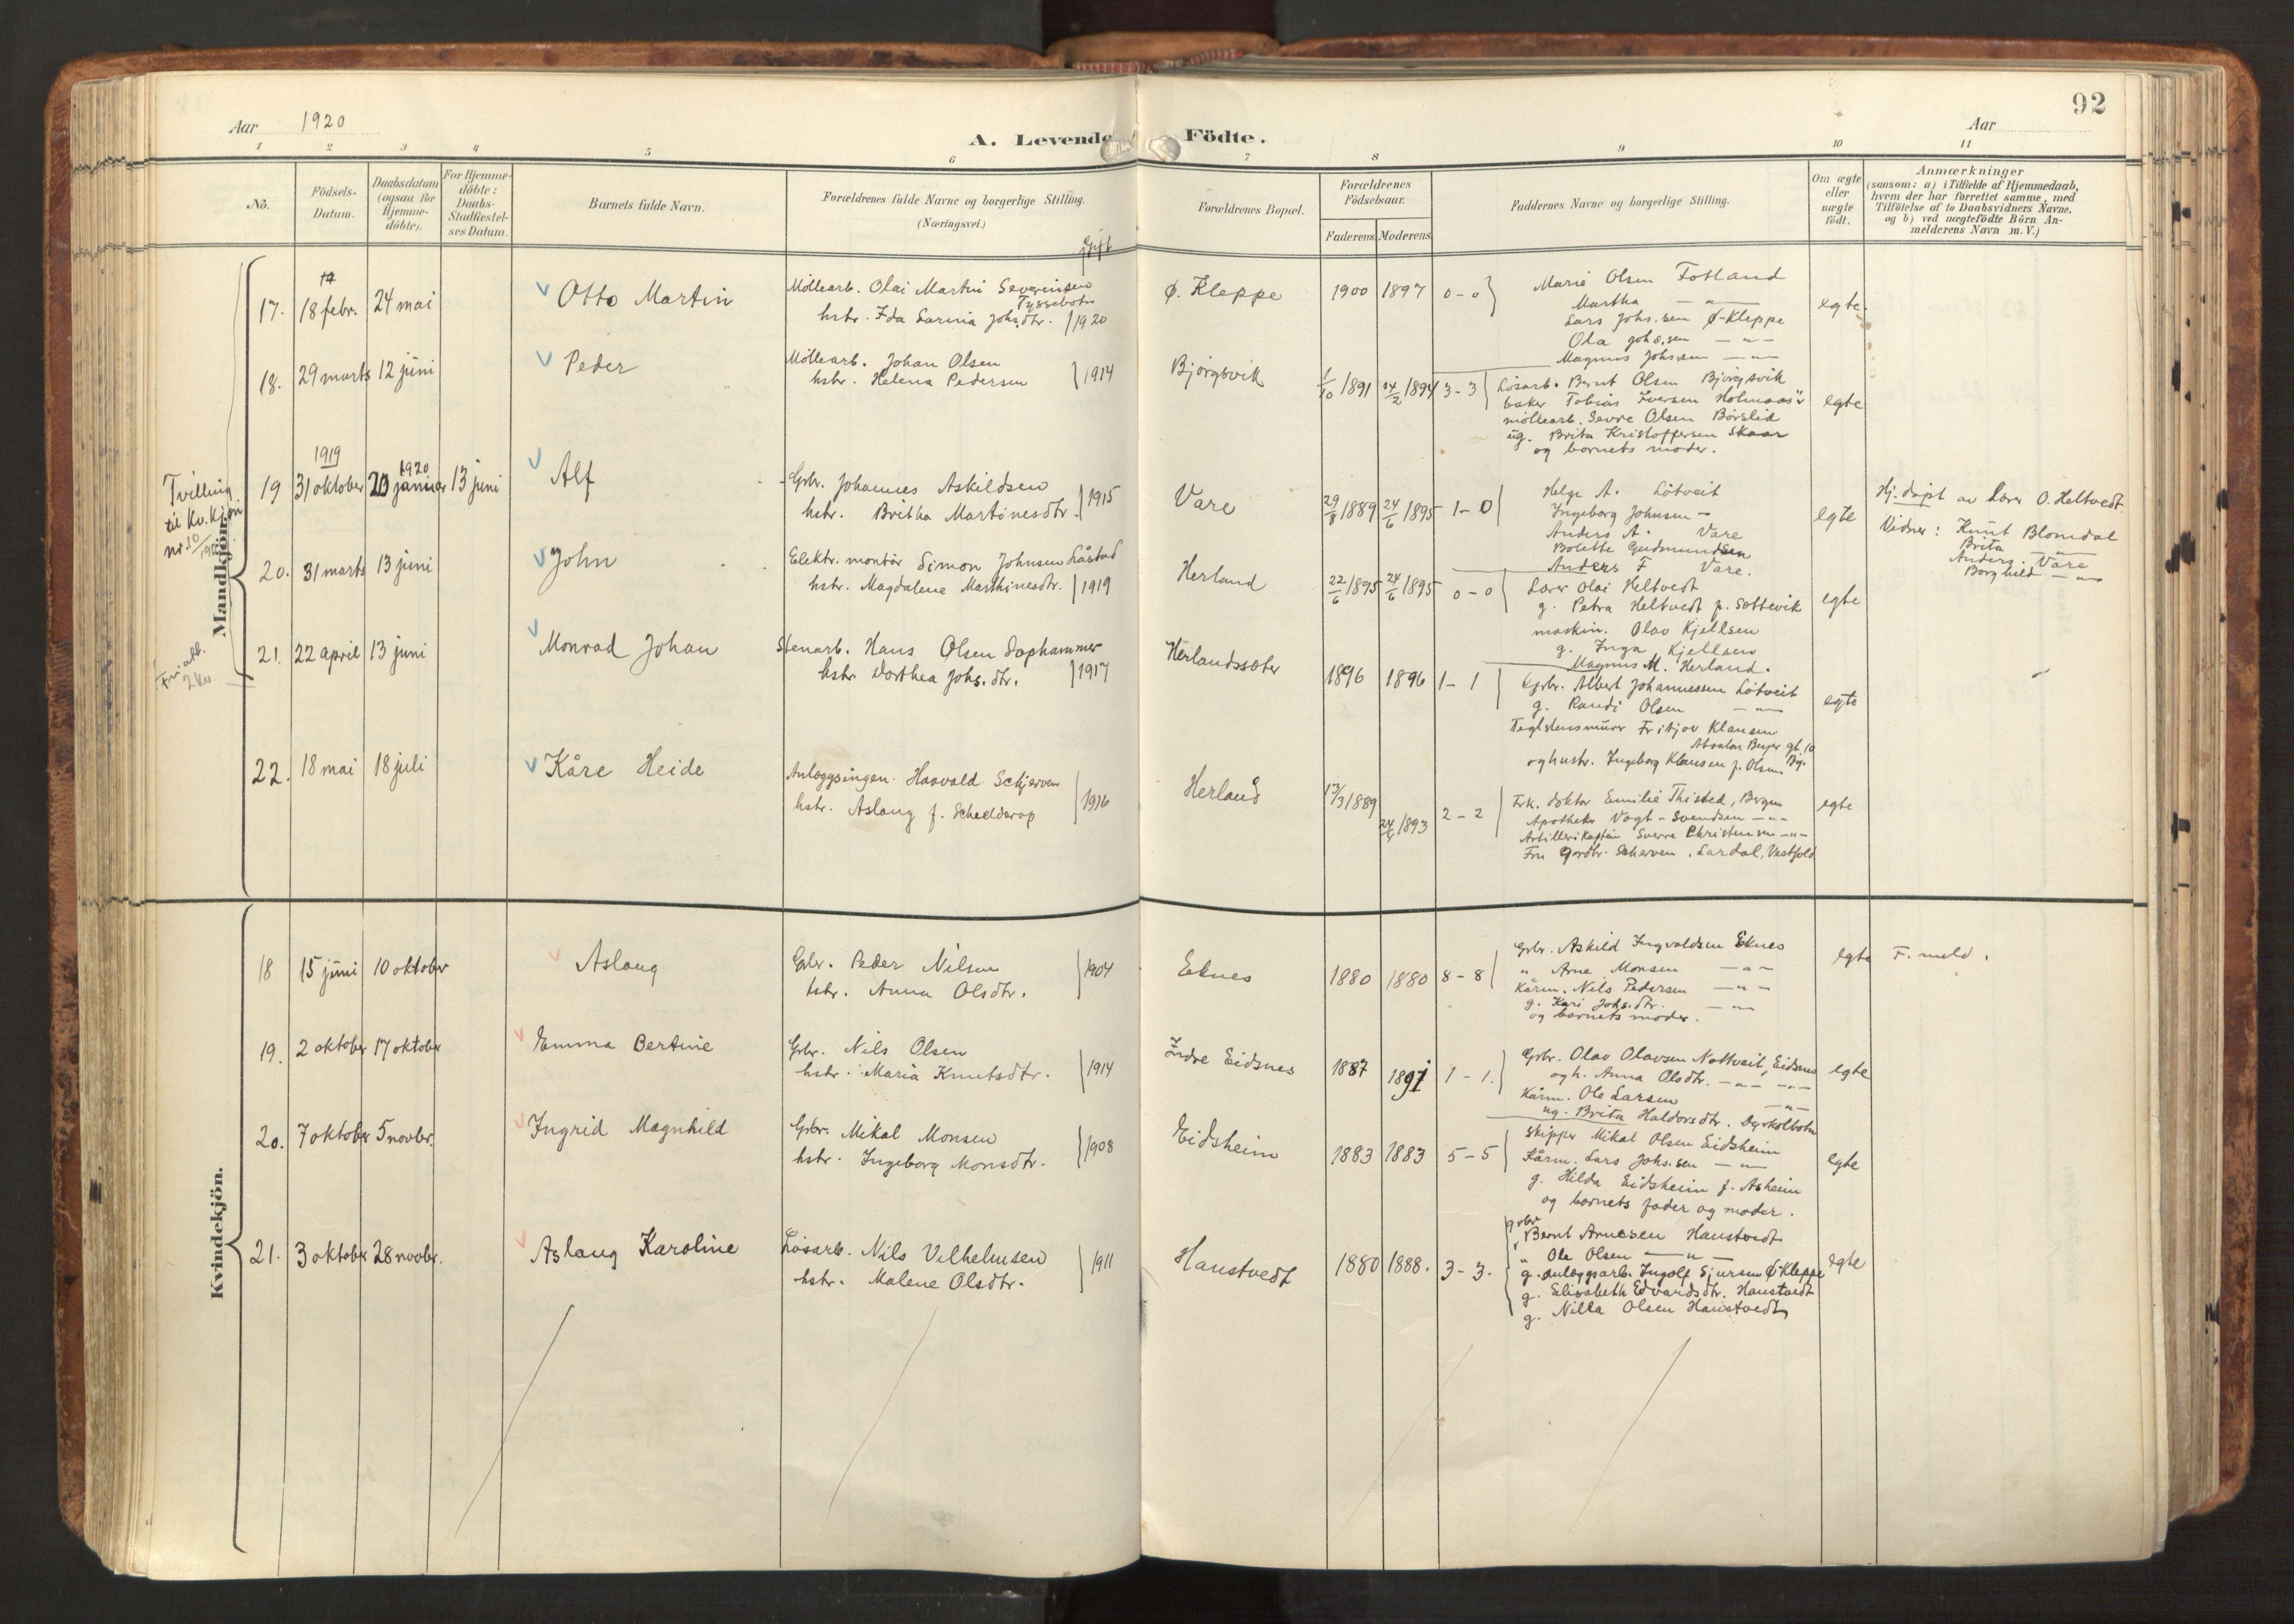 92
Aar 1920
A. Levende Födte.
Aar
1 2 3 4 5 6 7 8 9 10 11
No.
Födsels-
Datum.
Daabsdatum
(ogsaa for
Hjemme-
döbte).
For Hjemme-
döbte:
Daabs-
Stadfæstel-
ses Datum.
Barnets fulde Navn.
Forældrenes fulde Navne og borgerlige Stilling.
(Næringsvei.)
Gift
Forældrenes Bopæl.
Forældrenes
Födselsaar.
Faderens Moderens
Faddernes Navne og borgerlige Stilling.
Om ægte
eller
uægte
födt.
Anmærkninger
(saasom: a) i Tilfælde af Hjemmedaab,
hvem der har forrettet samme, med
Tilföielse af to Daabsvidners Navne,
og b) ved uægtefödte Börn An-
melderens Navn m. V.)
Mandkjön.
17. 18 febr. 24 mai
Otto Martin
Möllearb. Olai Martin Severinsen
Tyssebotn
hstr. Ida Larina Johs.dtr. 1920
Ø. Kleppe
1900 1897 0-0
Marie Olsen Fotland
Martha — " —
Lars Johs.sen Ø-Kleppe
Ola Johs.sen — " —
Magnus Johs.sen — " —
egte.
18. 29 marts 12 juni
Peder
Möllearb. Johan Olsen
hstr. Helena Pedersen 1914
Bjørgsvik
1/10 1891 14/2 1894 3-3
Løsarb. Bernt Olsen Bjørgsvik
baker Tobias Iversen Holmaas
möllearb. Sevre Olsen Børslid
ug. Brita Kristoffersen Skaar
og barnets moder.
egte
Tvilling
til Kv.kjøn
nr. 10
19 1919 31 oktober 1920 20 januar 13 juni
Alf
Grbr. Johannes Askildsen
hstr. Britha Martinesdtr. 1915
Vare
29/8 1889 24/6 1895 1-0
Helge A. Løtveit
Ingeborg Johnsen —
Anders A. Vare
Bolette Gudmundsen
Anders F Vare.
egte
Hj.døpt av Lærer O. Heltvedt.
Vidner: Knut Blomdal
Brita — " —
Anders Vare
Borghild — " —
20. 31 marts 13 juni
John
Elektr. montør Simon Johnsen Låstad
hstr. Magdalene Marthinesdtr. 1919
Herland
22/6 1895 24/6 1895 0-0
Lærer Olai Heltvedt
g. Petra Heltvedt f. Sættevik
maskin. Olav Kjellsen
g. Inga Kjellsen
Magnus M. Herland.
egte
21. 22 april 13 juni
Monrad Johan
Stenarb. Hans Olsen Daphammer
hstr. Dorthea Johs.dtr. 1917
Herlandssæter
1896 1896 1-1
Grbr. Albert Johannessen Løtveit
g. Randi Olsen — " —
Teglstensmurer Fritjov Klausen
Absalon Beyer gt. 10
og hustr. Ingeborg Klausen f. Olsen Bg.
egte
22. 18 mai 18 juli
Kåre Heide
Anlægsingen. Haavald Schjerven
hstr. Aslaug f. Schelderop 1916
Herland
13/3 1889 24/4 1893 2-2
Frk. doktor Emilie Thisted, Bergen
Apotheker Vogt-Svendsen — " —
Artillerikaptein Sverre Christensen — " —
Fru Gordbr. Scherven, Lardal, Vestfold
egte
Kvindekjön.
18 15 juni 10 oktober
Aslaug
Grbr. Peder Nilsen
hstr. Anna Olsdtr. 1904
Eknes
1880 1880 8-8
Grbr. Askild Ingvaldsen Eknes
" Arne Monsen — " —
Kårm. Nils Pedersen — " —
g. Kari Johs.dtr. — " —
og barnets moder.
egte F. meld.
19. 2 oktober 17 oktober
Emma Bertine
Grbr. Nils Olsen
hstr. Maria Knutsdtr. 1914
Indre Eidsnes
1887 1891 1-1.
Grbr. Olav Olavsen Nottveit, Eidsnes
og h. Anna Olsdtr. — " — — " —
Kårm. Ole Larsen — " —
ug. Brita Haldorsdtr. Dyrkolbotn
egte
20. 7 oktober 5 novbr.
Ingrid Magnhild
Grbr. Mikal Monsen
hstr. Ingeborg Monsdtr. 1908
Eidsheim
1883 1883 5-5
Skipper Mikal Olsen Eidsheim
Kårm. Lars Johs.sen — " —
g. Hilda Eidsheim f. Asheim
og barnets fader og moder.
egte
21. 3 oktober 28 novbr.
Aslaug Karoline
Løsarb. Nils Vilhelmsen
hstr. Malene Olsdtr. 1911
Hanstvedt
1880 1888. 3-3.
grbr
Bernt Arnesen Hanstvedt
" Ole Olsen — " —
g. anlægsarb. Ingolf Sjursen Ø-Kleppe
g. Elisabeth Edvardsdtr. Hanstvedt
g. Nilla Olsen Hanstvedt
egte